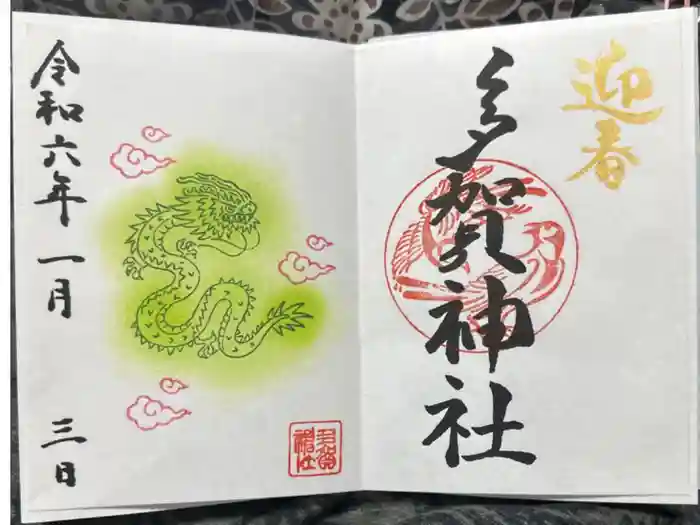 迎春
多賀神社
令和六年一月三日
多賀神社